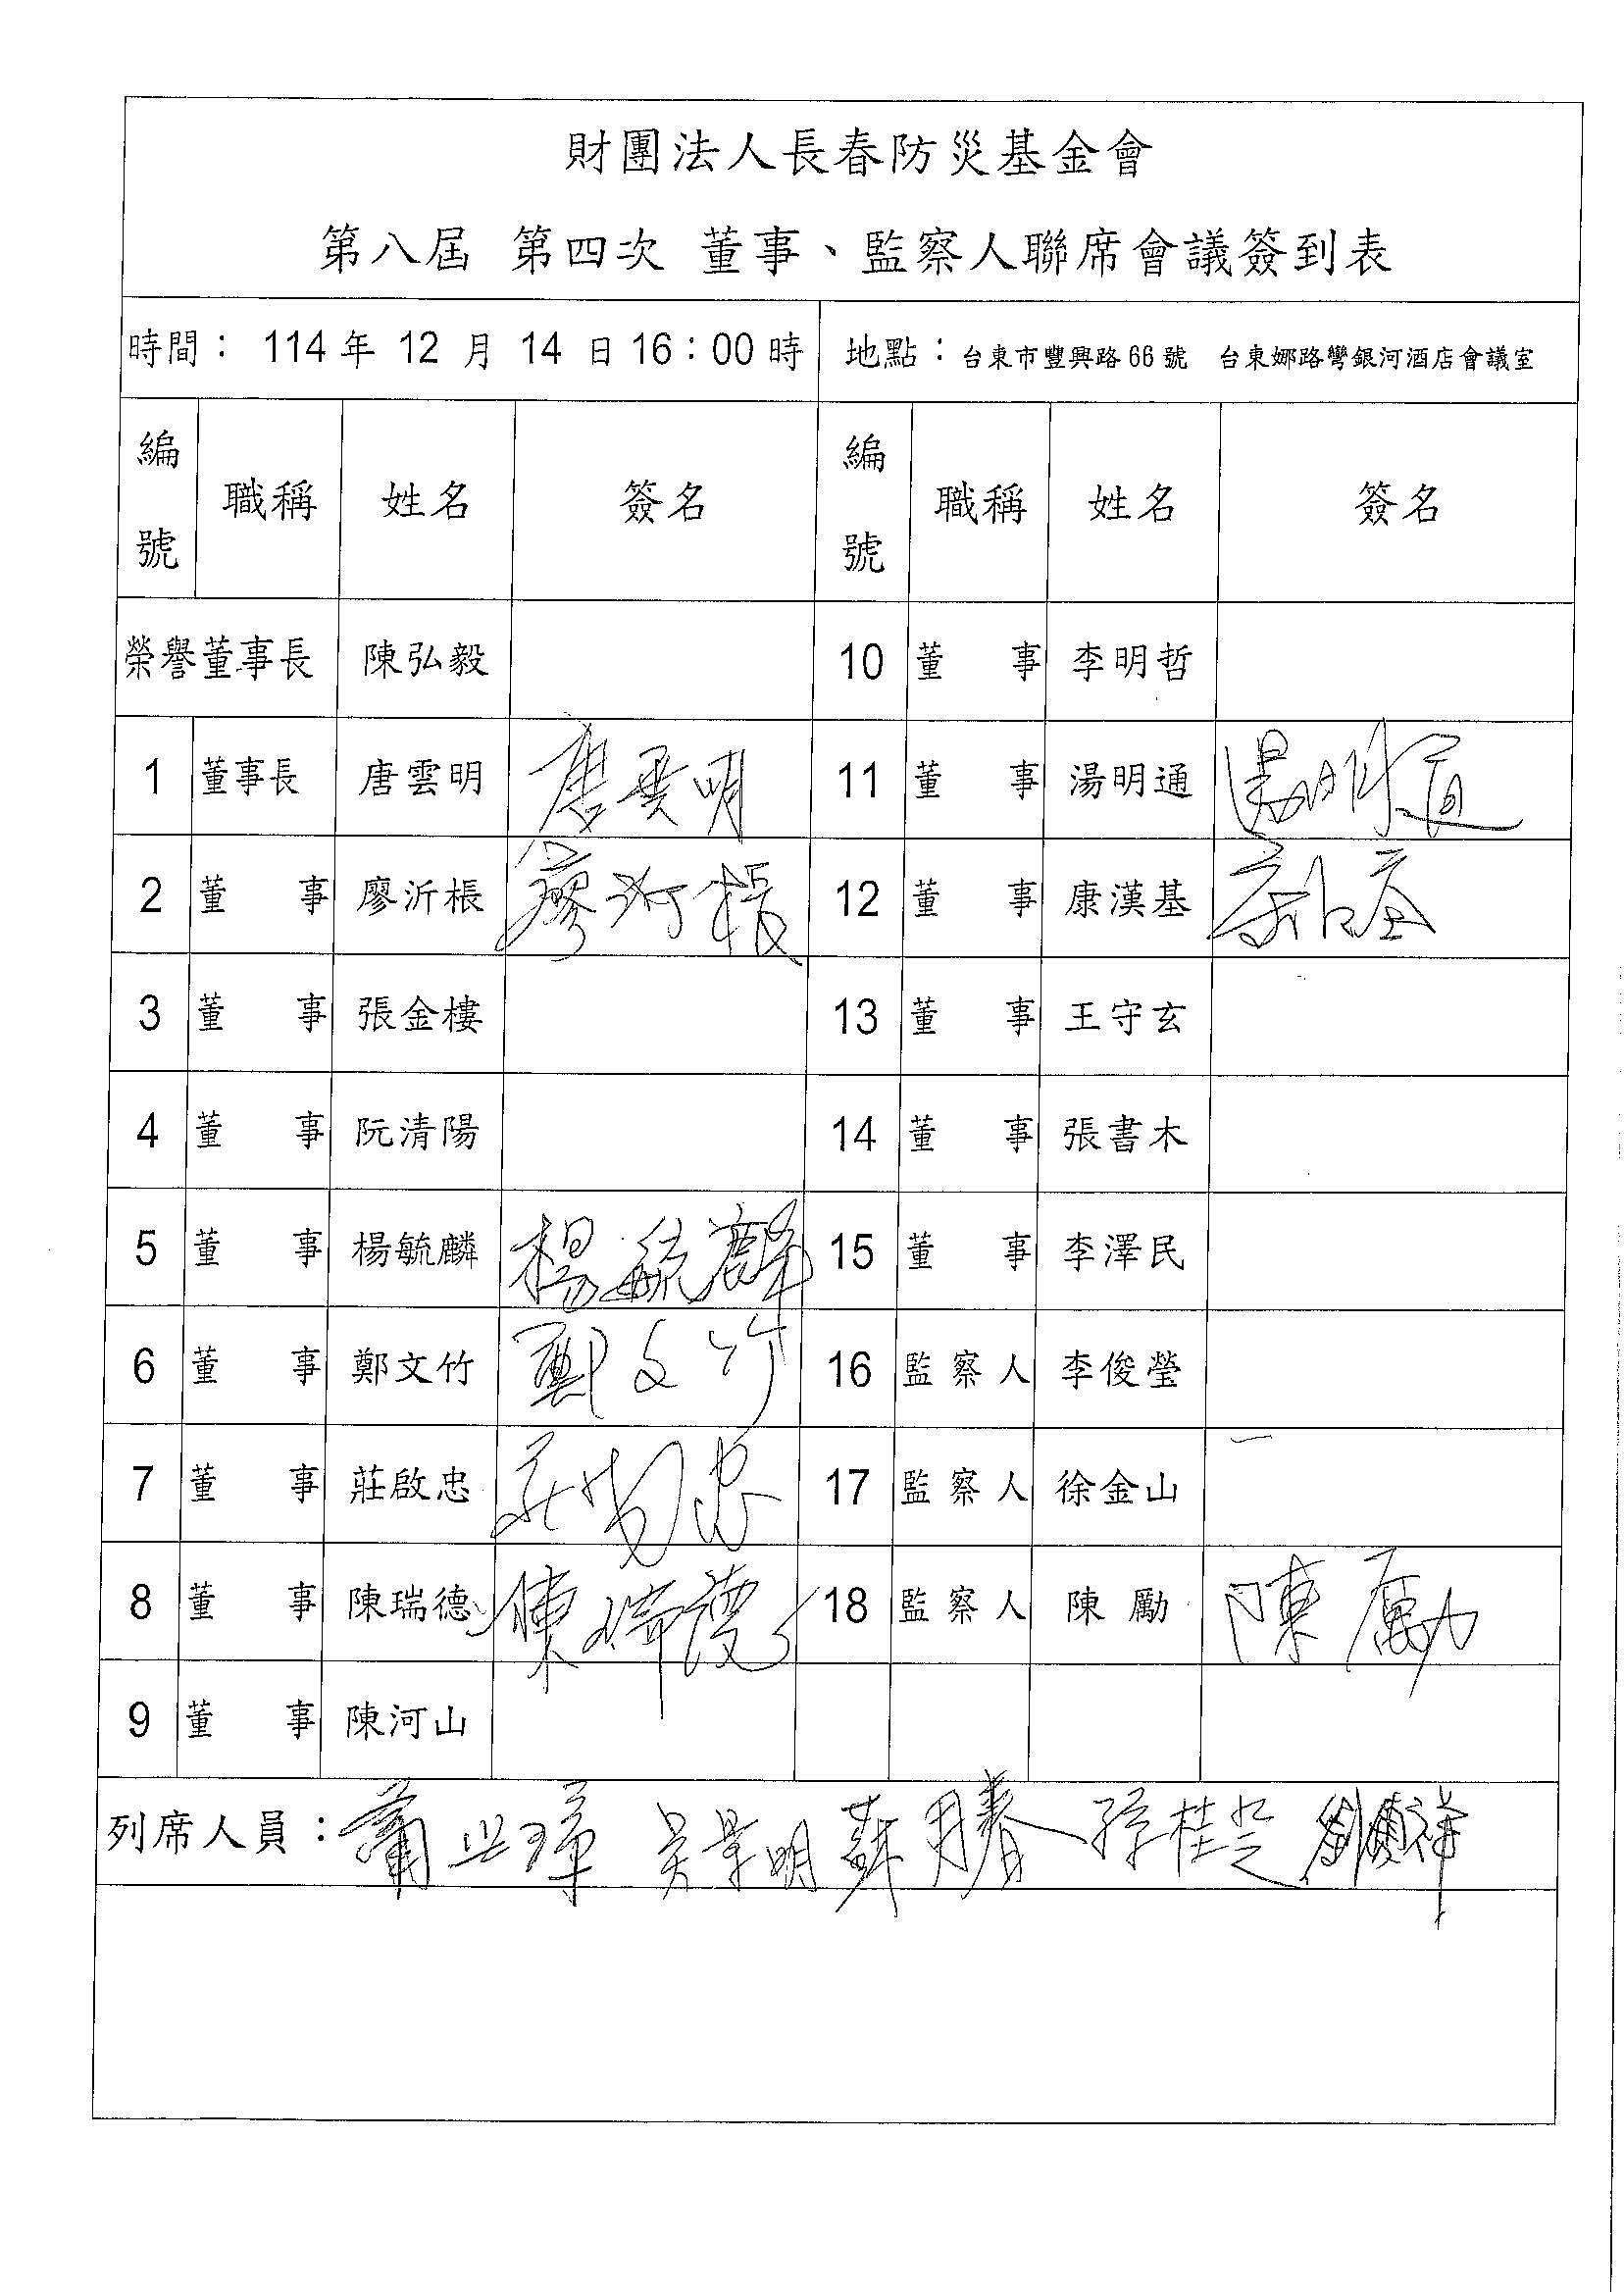 財團法人長春防災基金會
第八屆 第四次 董事、監察人聯席會議簽到表
時間： 114 年 12 月 14 日 16：00 時 地點：台東市豐興路66號 台東娜路彎銀河酒店會議室
編號 職稱 姓名 簽名 編號 職稱 姓名 簽名
榮譽董事長 陳弘毅 10 董事 李明哲
1 董事長 唐雲明 唐雲明 11 董事 湯明通 湯明通
2 董事 廖沂棖 廖沂棖 12 董事 康漢基 康漢基
3 董事 張金樓 13 董事 王守玄
4 董事 阮清陽 14 董事 張書木
5 董事 楊毓麟 楊毓麟 15 董事 李澤民
6 董事 鄭文竹 鄭文竹 16 監察人 李俊瑩
7 董事 莊啟忠 莊啟忠 17 監察人 徐金山
8 董事 陳瑞德 陳瑞德 18 監察人 陳勵 陳勵
9 董事 陳河山
列席人員：蕭 吳景明 蘇 孫桂芝 劉